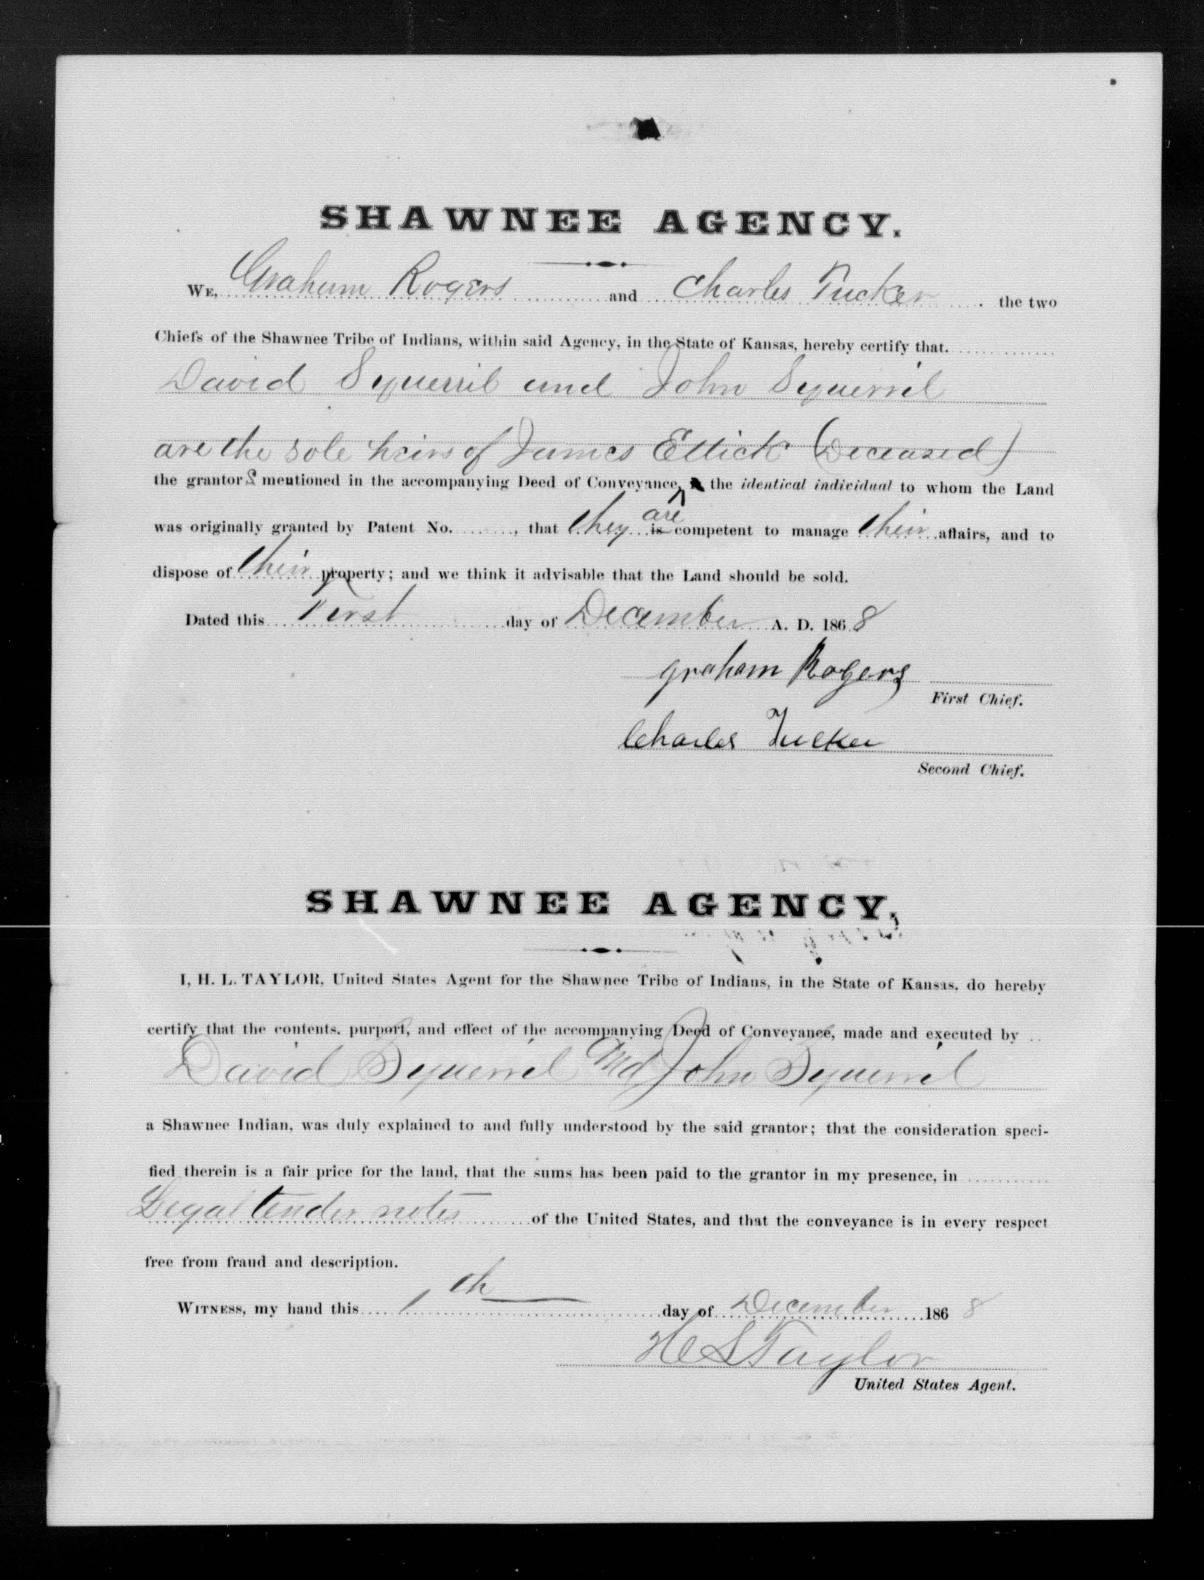 SHAWNEE AGENCY.
WE, Graham Rogers and Charles Tucker the two
Chiefs of the Shawnee Tribe of Indians, within said Agency, in the State of Kansas, hereby certify that
David Squerril and John Squerril
are the sole heirs of James Ellick (Deceased)
the grantors mentioned in the accompanying Deed of Conveyance, the identical individual to whom the Land
are
was originally granted by Patent No. , that they is competent to manage their affairs, and to
dispose of their property; and we think it advisable that the Land should be sold.
Dated this First day of December A. D. 1868
graham Rogers
First Chief.
Charles Tucker
Second Chief.
SHAWNEE AGENCY,
I, H. L. TAYLOR, United States Agent for the Shawnee Tribe of Indians, in the State of Kansas, do hereby
certify that the contents, purport, and effect of the accompanying Deed of Conveyance, made and executed by
David Squerril and John Squerril
a Shawnee Indian, was duly explained to and fully understood by the said grantor; that the consideration speci-
fied therein is a fair price for the land, that the sums has been paid to the grantor in my presence, in
Legal tender notes of the United States, and that the conveyance is in every respect
free from fraud and description.
WITNESS, my hand this 1th day of December 1868
H L Taylor
United States Agent.